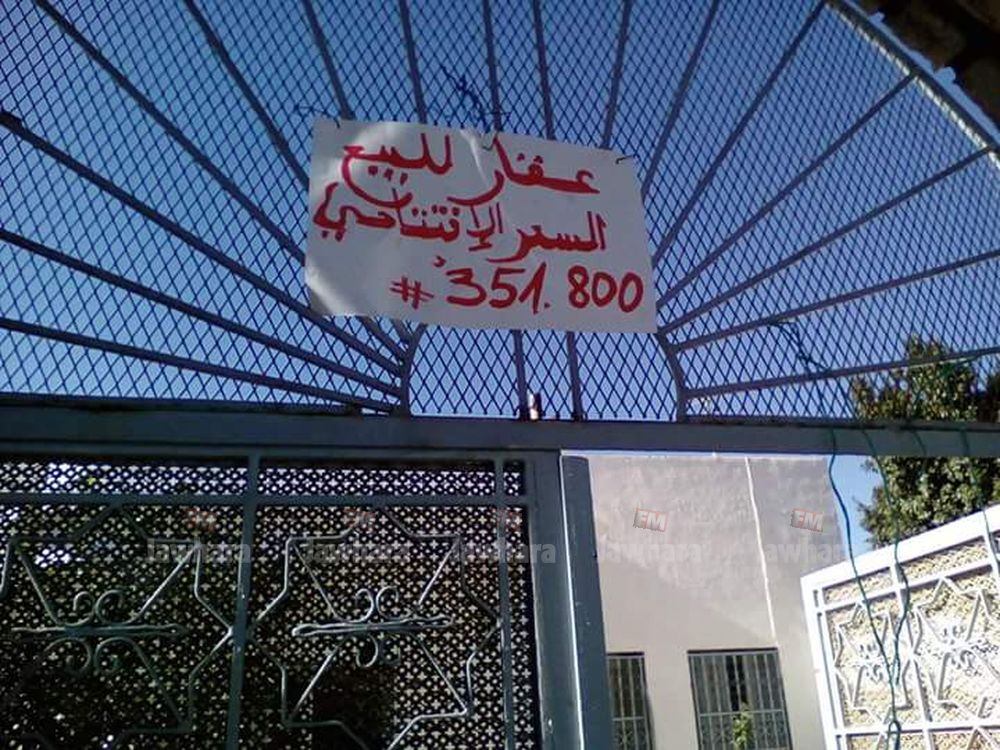 عقار للبيع
السعر الإفتتاحي
351.800 #
FM FM FM FM
Jawhara Jawhara Jawhara Jawhara Jawhara